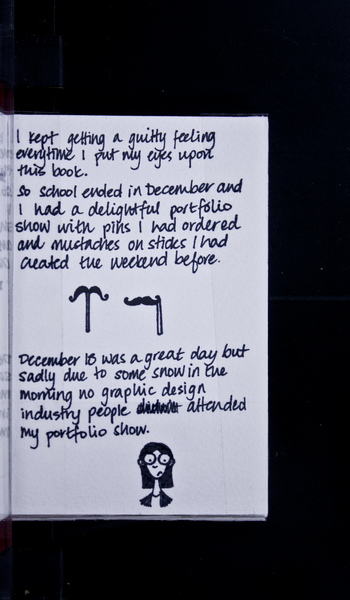 I kept getting a guilty feeling
everytime I put my eyes upon
this book.
So school ended in December and
I had a delightful portfolio
show with pins I had ordered
and mustaches on sticks I had
created the weekend before.
December 18 was a great day but
sadly due to some snow in the
morning no graphic design
industry people attended
my portfolio show.